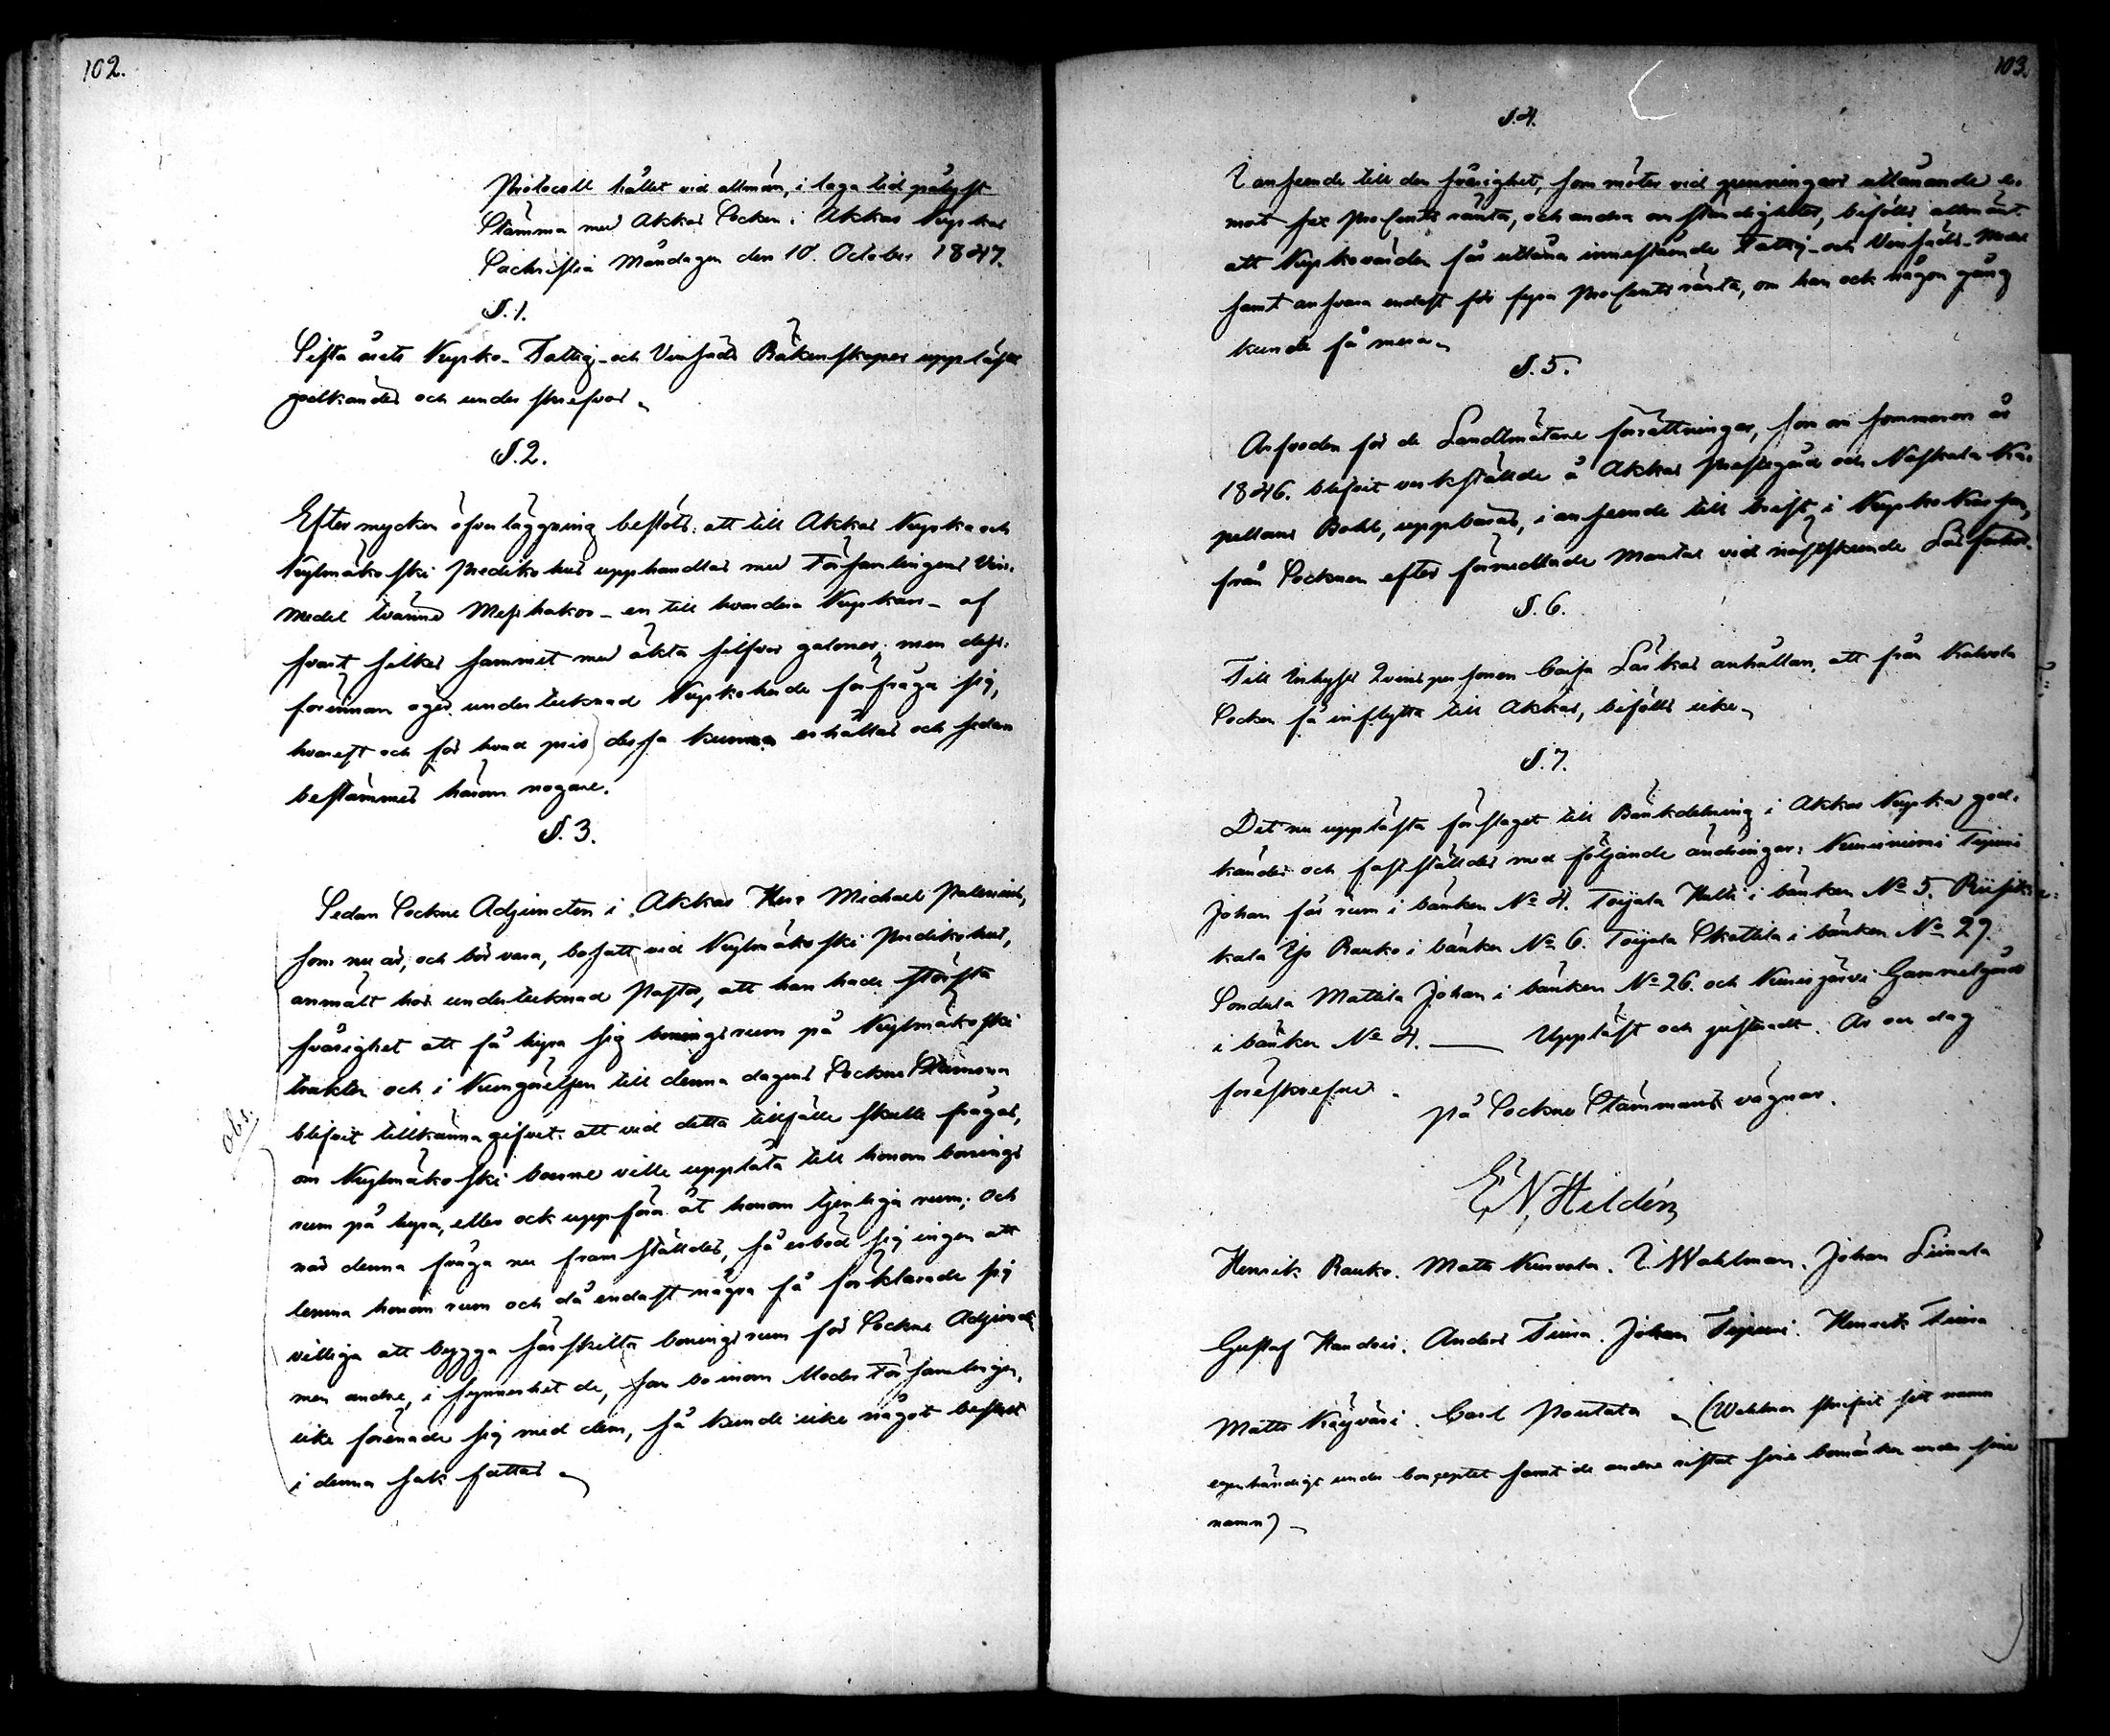 102.
Protocoll hållet vid allmän, i laga tid pålyst
Stämma med Akkas Socken i Akkas Kyrkas
Sachristia Måndagen den 18. October 1847.
§. 1.
Sista årets Kyrko- Fattig- och Vinsäds Räkenskaper upplästes
godkändes och underskrefvos.
§. 2.
Efter mycken öfverläggning beslöts: att till Akkas Kyrka och
Kylmäkoski Predikohus upphandlas med Församlingens Vin-
medel tvänne Messhakor - en till hvardera Kyrkan - af
svart silkes sammet med äkta silfver galoner; men dess-
förinnan äger undertecknad Kyrkoherde förfråga sig,
hvarest och för hvad pris dessa kunna erhållas och sedan
bestämmes härom nogare.
§. 3.
Sedan Sockne Adjuncten i Akkas Herr Michael Palenius,
som nu är, och bör vara, bosatt vid Kylmäkoski Predikohus,
anmält hos undertecknad Pastor, att han hade största
svårighet att få hyra sig boningsrum på Kylmäkoski
trakten och i Kungörelsen till denna dagens Sockne Stämma
blifvit tillkännagifvet: att vid detta tillfälle skulle frågas,
obs.
om Kylmäkoski boerne ville upplåta till honom bonings
rum på hyra, eller ock uppföra åt honom tjenliga rum; Och
när denna fråga nu framställdes, så erböd sig ingen att
lemna honom rum och då endast några få förklarade sig
villiga att bygga särskilta boningsrum för Sockne Adjunct
men andre, i synnerhet de, som bo inom Moder Församlingen,
icke förenade sig med dem, så kunde icke något beslut
i denna sak fattas.
103.
§. 4.
I anseende till den svårighet, som möter vid penningars utlånande e-
mot sex Procents ränta, och andra omständigheter, bifölls allmänt
att Kyrkovärden får utlåna innestående Fattig- och Vinsäds-Medel
samt ansvara endast för fyra Procents ränta, om han ock någon gång
kunde få mera.
§. 5.
Arfvoden för de Landtmätare förrättningar, som om sommaren år
1846. blifvit verkställde å Akkas Prestegård och Naskala Ka-
pellans Bohl, uppbäras, i anseende till brist i Kyrko Kassan,
från Socknen efter förmedlade Mantal vid nästskeende
§. 6.
Till Inhyses Qvinspersonen Caisa anhållan, att från Kalvola
Socken få inflytta till Akkas, bifölls icke.
§. 7.
Det nu upplästa förslaget till Bänkdelning i Akkas Kyrka god-
kändes och fastställdes med följande ändringar: Kurisniemi
Johan får rum i bänken No 4. Toijala Heikki i bänken No 5.
kala Yli Rauko i bänken No 6. Toijala Skottila i bänken No 29.
Sondula Mattila Johan i bänken No 26. och Kurisjärvi Gammelgård
i bänken No 4. — Uppläst och justeradt. År och dag
föreskrefne.
På Sockne Stämmans vägnar.
E N Hildén
Henrik Rauko. Matts Kurvola. I. Wahlman. Johan Liinala
Gustaf Handris. Anders Finna. Johan Henrik Finna
Matts Käyväri. Carl Pontala (Wahlman skrifvit sitt namn
egenhändigt under conceptet samt de andre ristat sine bomärken under sine
namn)